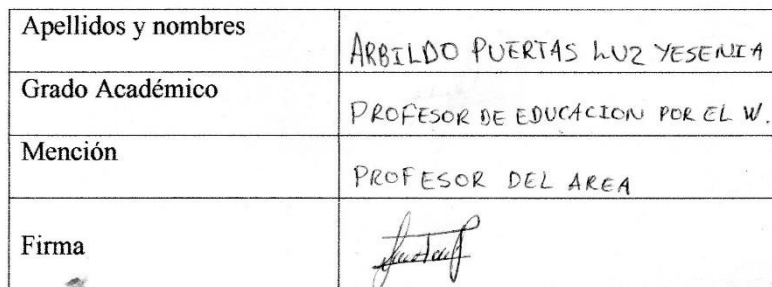 Apellidos y nombres
ARBILDO PUERTAS LUZ YESENIA
Grado Académico
PROFESOR DE EDUCACION POR EL W.
Mención
PROFESOR DEL AREA
Firma